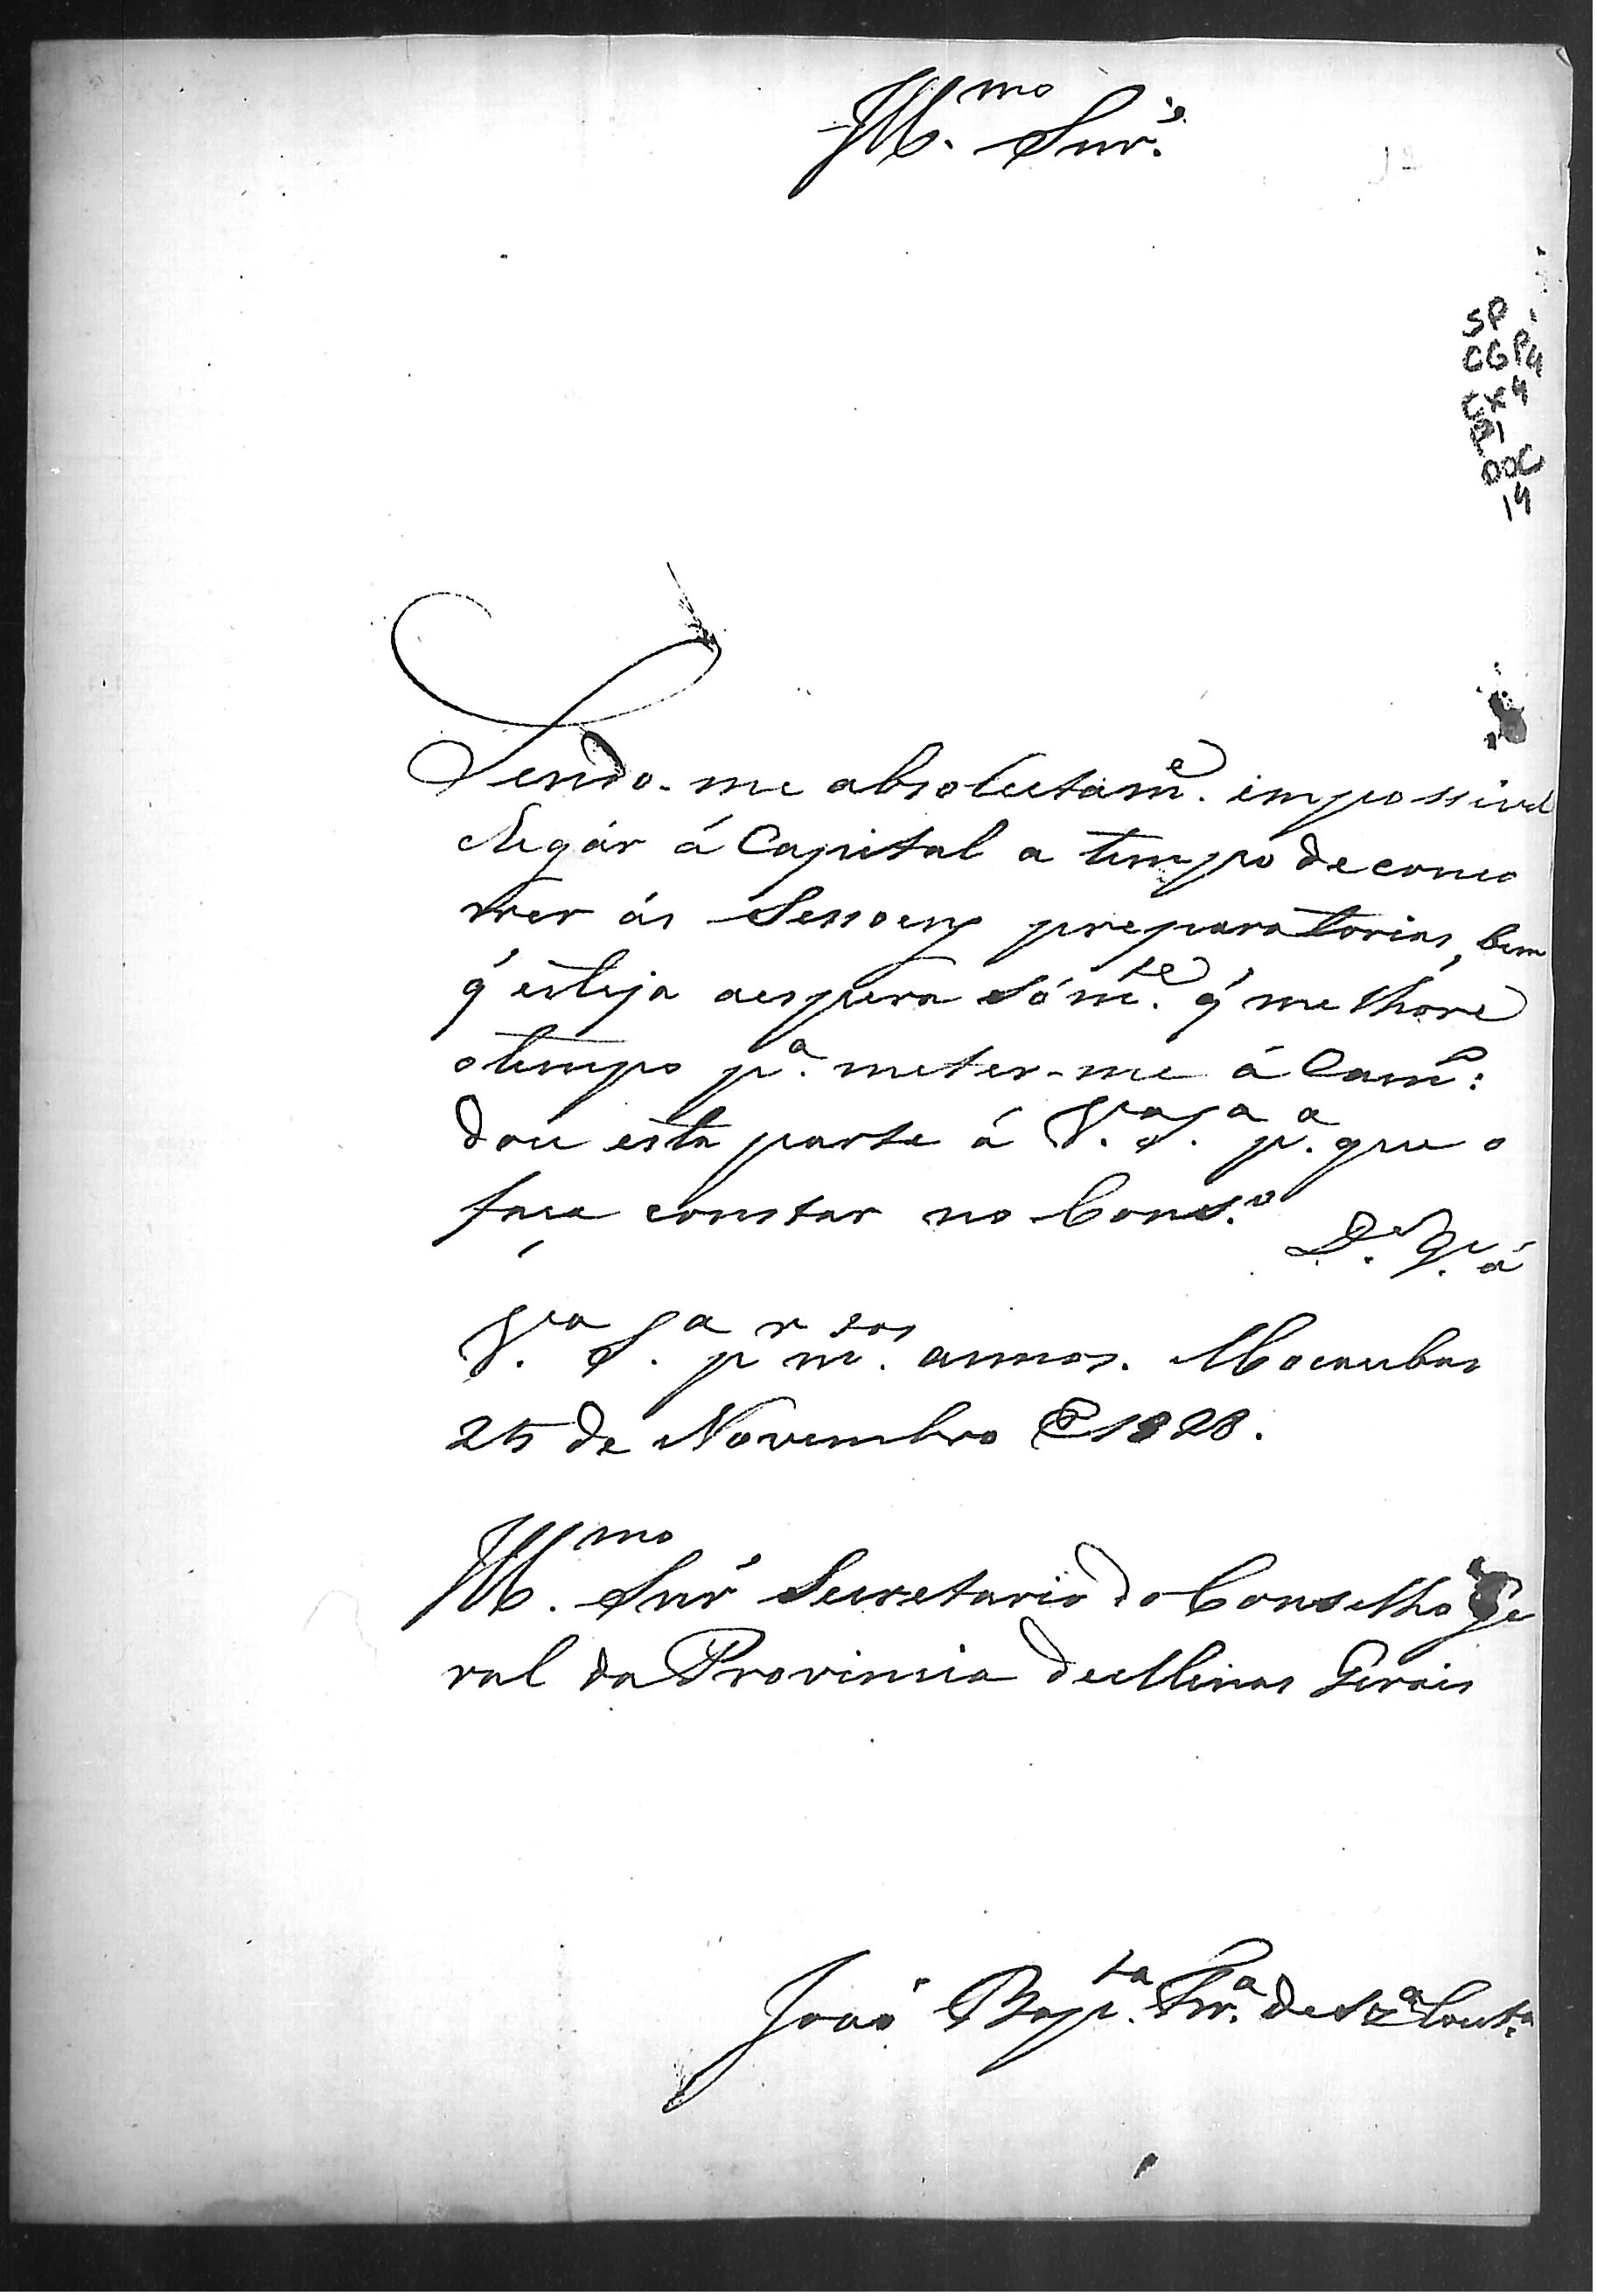 Ill.mo Snr.e
SP
CGP4
CX4
DOC
14
Sendo-me absolutam.e impossivel
chegár á Capital a tempo de conco
rrer ás Sessoens preparatorias, bem
q' esteja aespera sóm.te q' melhore
otempo p.a meter-me á Cam.o:
dou esta parte á V.a S.a p.a que o
faça constar no Cons.o
D.s G.e á
V.a S.a p.r m.tos annos. Macaubas
25 de Novembro de 1828.
Ill.mo Snr' Secretario do Conselho Ge
ral da Provincia de Minas Gerais
João Bap.ta Frr.a de Sz.a Cout.o